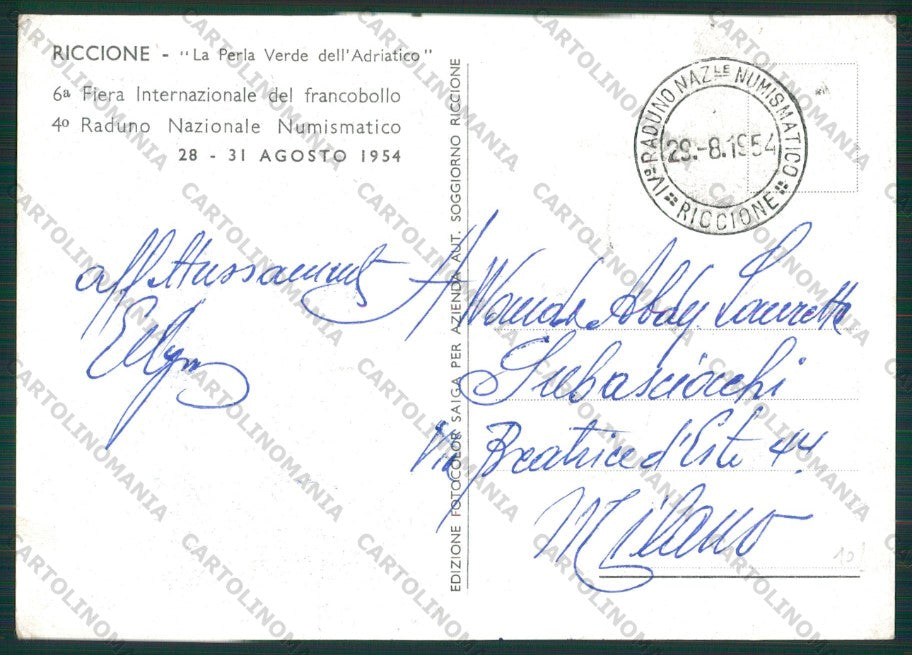 RICCIONE - "La Perla Verde dell'Adriatico"
6ª Fiera Internazionale del francobollo
4º Raduno Nazionale Numismatico
28 - 31 AGOSTO 1954
affettuosamente
EDIZIONE FOTOCOLOR SAIGA PER AZIENDA AUT. SOGGIORNO RICCIONE
IVº RADUNO NAZLE NUMISMATICO
29.-8.1954
RICCIONE
A Wanda Abdy Lauretta
Subasciachi
Via Beatrice d'Este 44
Milano
CARTOLINOMANIA